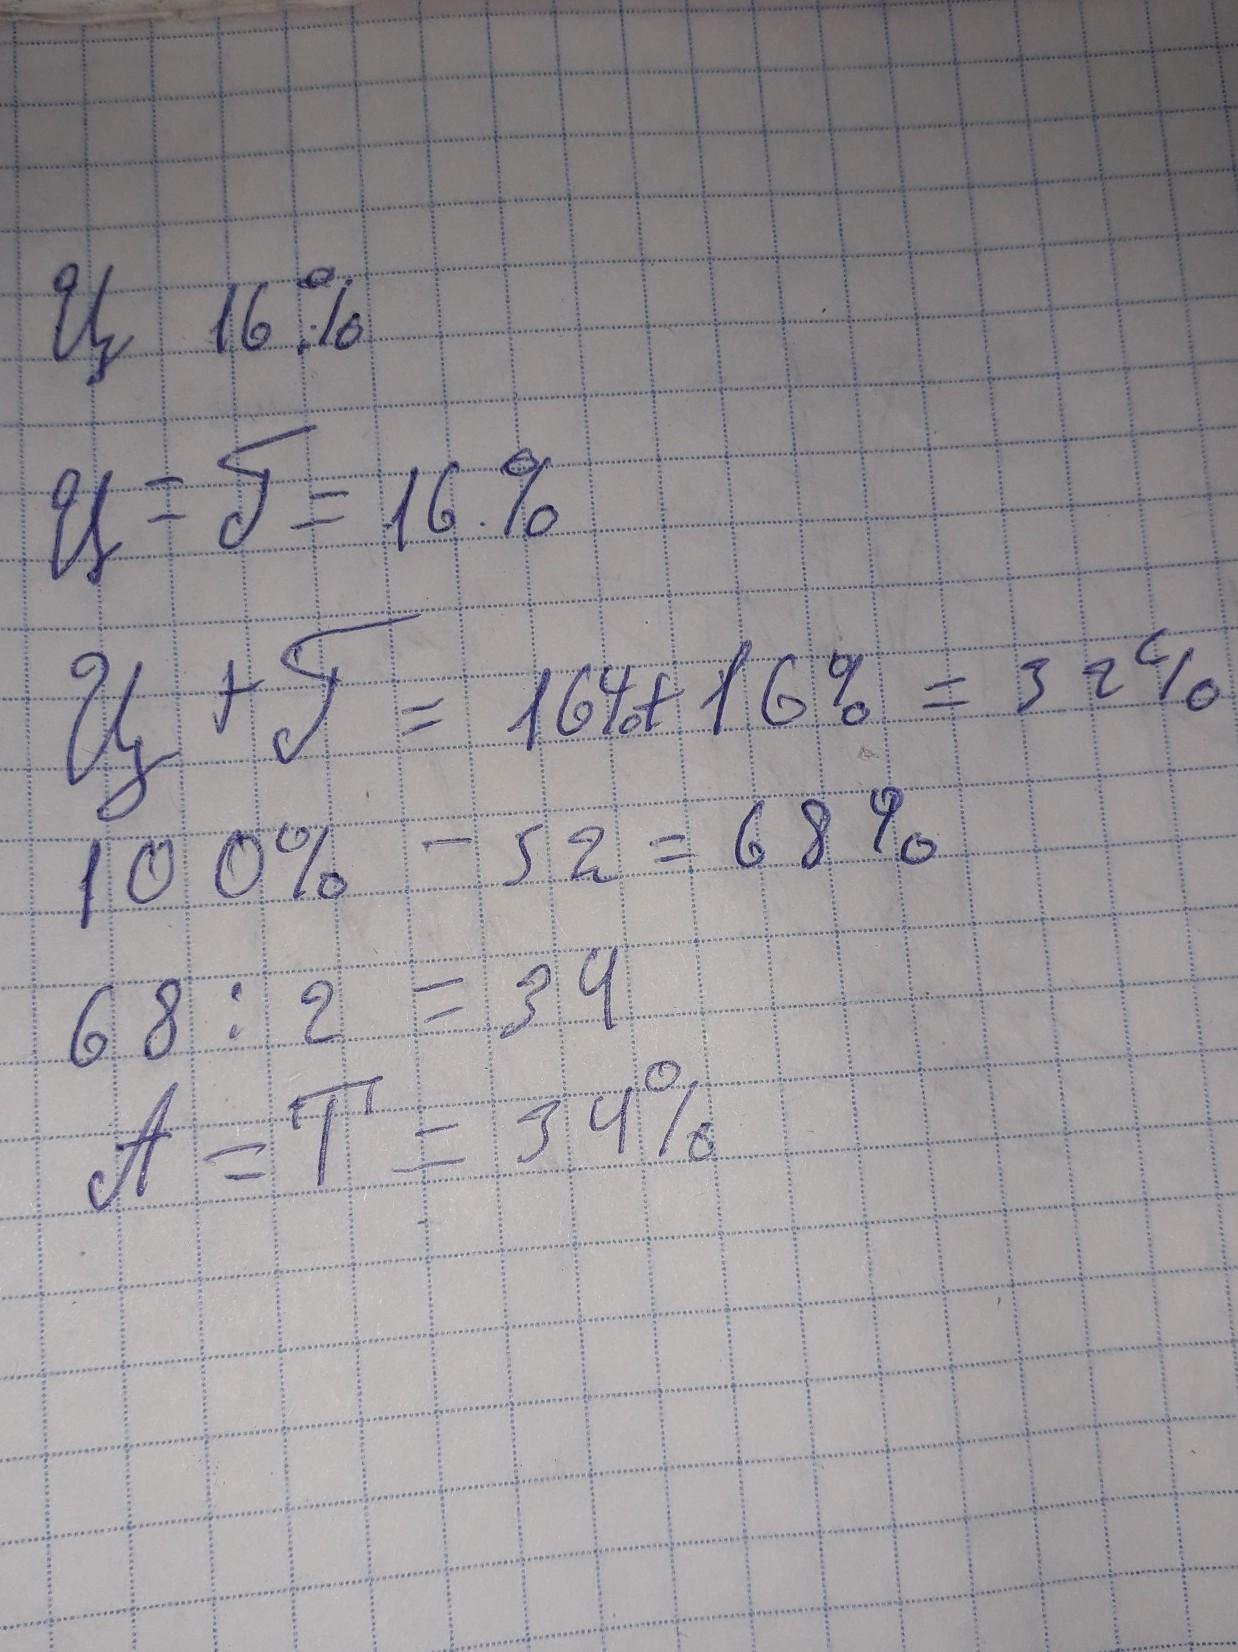 Ц 16%
Ц = Г = 16%
Ц + Г = 16%+16% = 32%
100% - 32 = 68%
68 : 2 = 34
А = Т = 34%